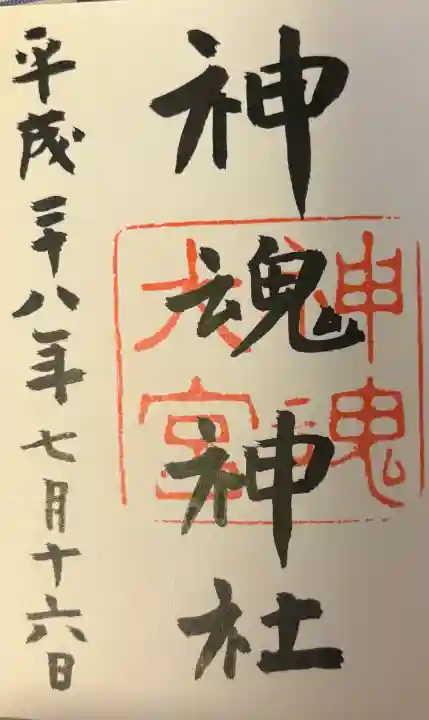 神魂神社
神魂
大宮
平成二十八年七月十六日